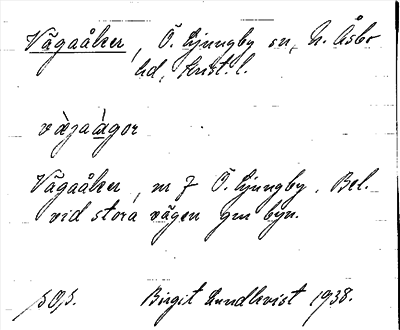 Vägaåker, Ö. Ljungby sn, N. Åsbo
hd, Krist. l.
vàjaàgor
Vägaåker, m f Ö. Ljungby. Bel.
vid stora vägen gm byn.
Birgit Lundkvist 1938.